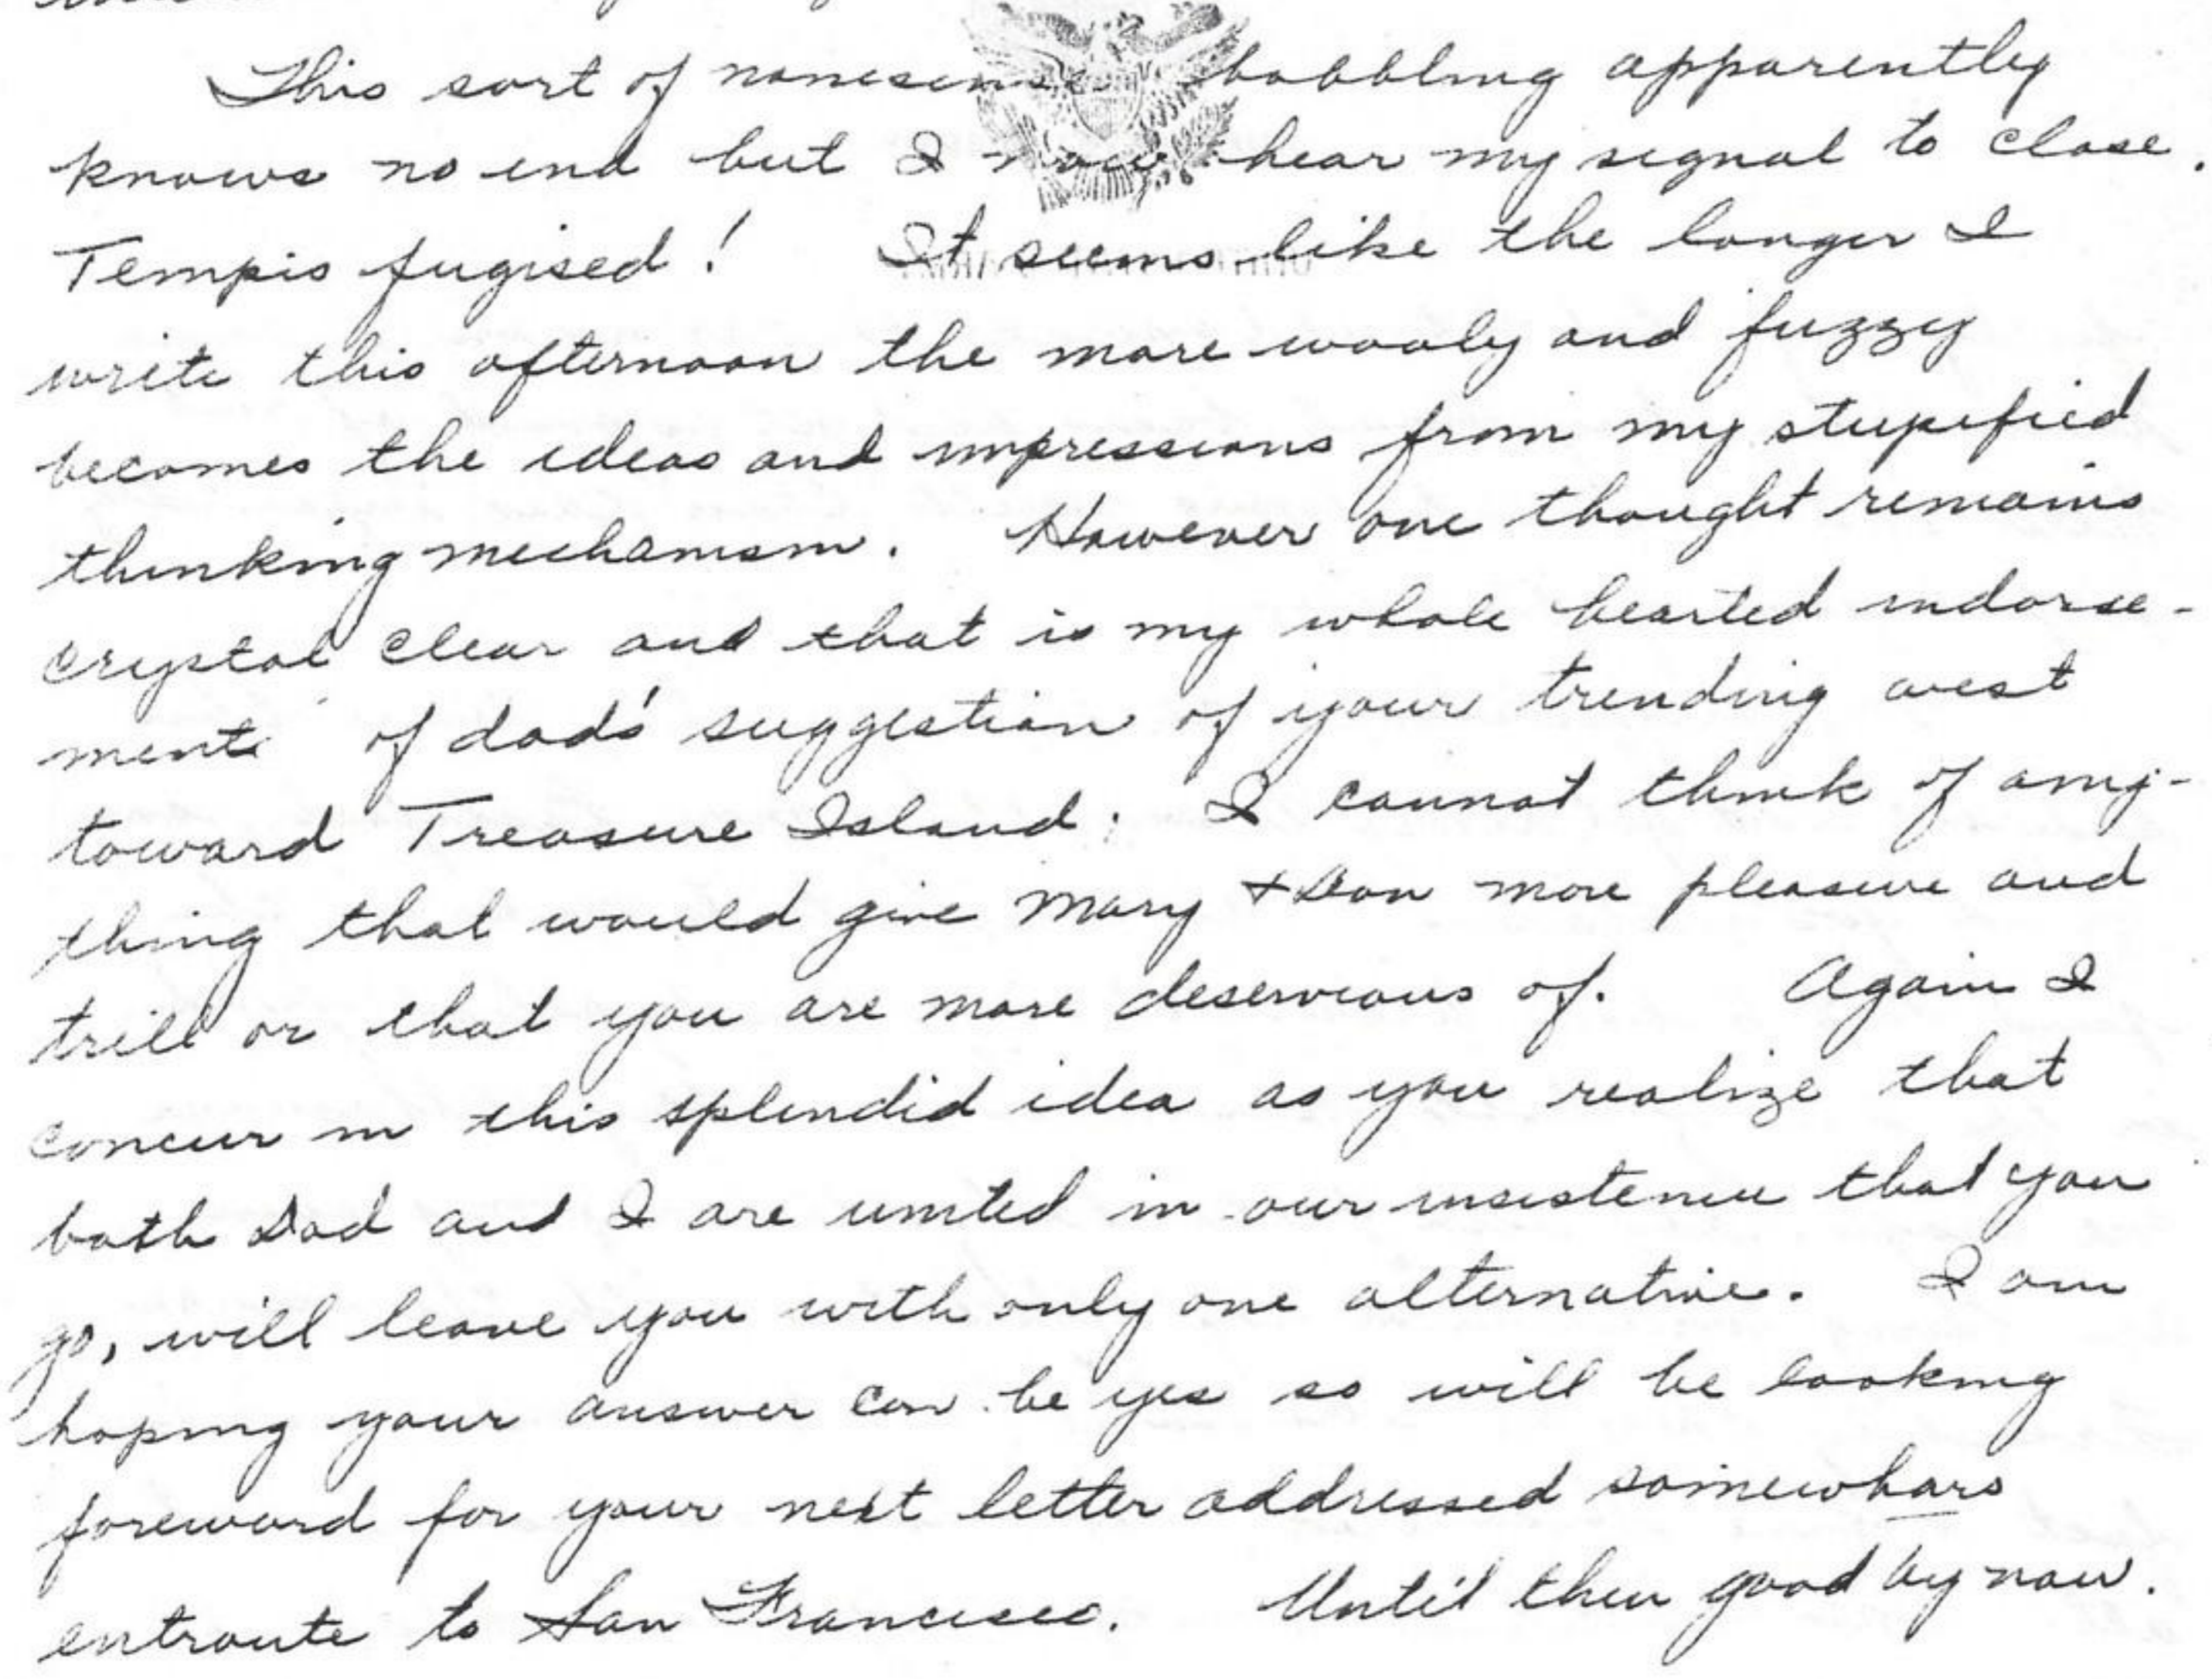 This sort of nonesense babbling apparently
knows no end but I now hear my signal to close.
Tempis fugised! It seems like the longer I
write this afternoon the more wooly and fuzzy
becomes the ideas and impressions from my stupified
thinking mechanism. However one thought remains
crystal clear and that is my whole hearted indorse-
ment of dad's suggestion of your trending west
toward Treasure Island. I cannot think of any-
thing that would give Mary + Don more pleasure and
trill or that you are more deservious of. Again I
concur in this splendid idea as you realize that
both Dad and I are united in our insistence that you
go, will leave you with only one alternative. I am
hoping your answer can be yes so will be looking
foreward for your next letter addressed somewhars
entroute to San Francisco. Until then good by now.